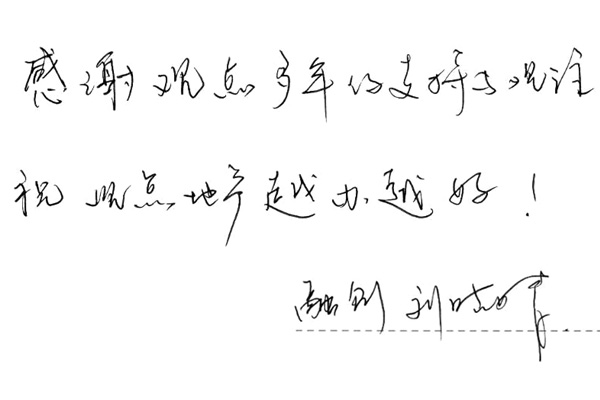 感谢观点多年的支持与关注
祝观点地产越办越好！
融创 刘晓青